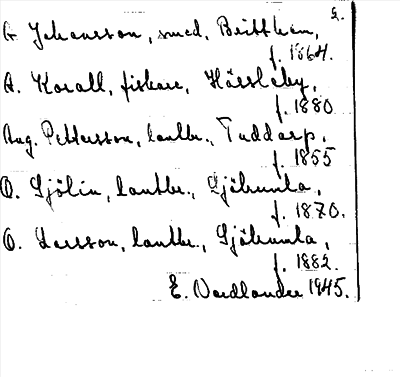 2.
G Johansson, smed, Brittham,
f. 1864.
A. Korall, fiskare, Hässleby,
f. 1880
Aug. Pettersson, lantbr., Tuddarp,
f. 1855
O. Sjölin, lantbr., Sjöhumla,
f. 1870.
O. Larsson, lantbr., Sjöhumla,
f. 1882.
E. Nordlander 1945.